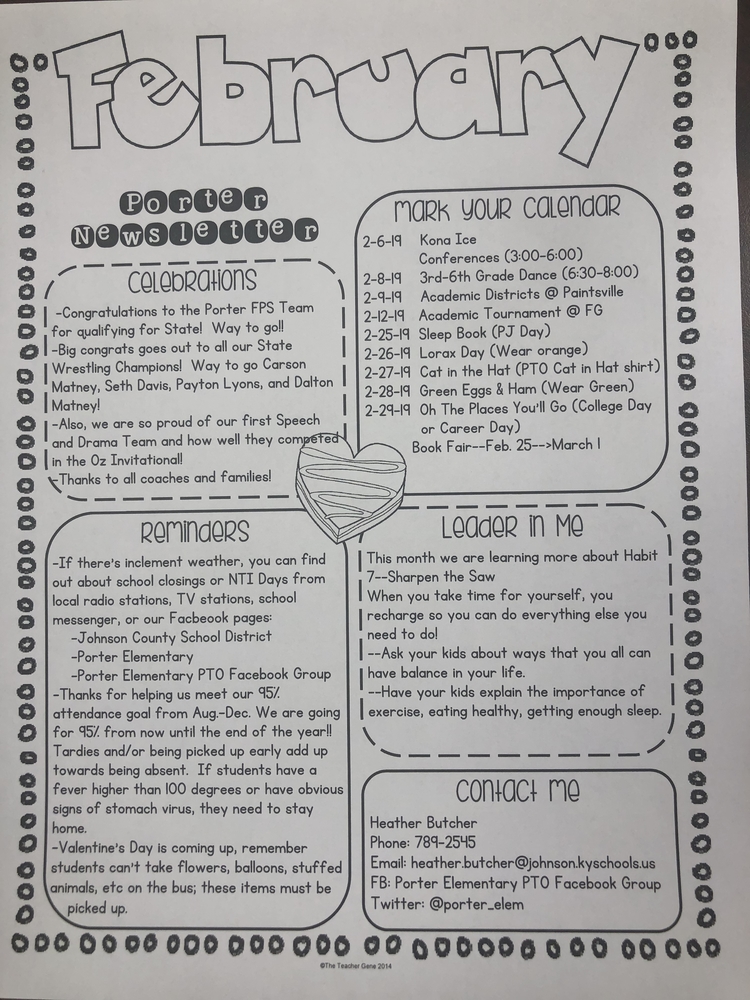 February
Porter
Newsletter
Celebrations
-Congratulations to the Porter FPS Team
for qualifying for State! Way to go!!
-Big congrats goes out to all our State
Wrestling Champions! Way to go Carson
Matney, Seth Davis, Payton Lyons, and Dalton
Matney!
-Also, we are so proud of our first Speech
and Drama Team and how well they competed
in the Oz Invitational!
-Thanks to all coaches and families!
Mark Your Calendar
2-6-19 Kona Ice
Conferences (3:00-6:00)
2-8-19 3rd-6th Grade Dance (6:30-8:00)
2-9-19 Academic Districts @ Paintsville
2-12-19 Academic Tournament @ FG
2-25-19 Sleep Book (PJ Day)
2-26-19 Lorax Day (Wear orange)
2-27-19 Cat in the Hat (PTO Cat in Hat shirt)
2-28-19 Green Eggs & Ham (Wear Green)
2-29-19 Oh The Places You'll Go (College Day
or Career Day)
Book Fair--Feb. 25-->March 1
Reminders
-If there's inclement weather, you can find
out about school closings or NTI Days from
local radio stations, TV stations, school
messenger, or our Facbeook pages:
-Johnson County School District
-Porter Elementary
-Porter Elementary PTO Facebook Group
-Thanks for helping us meet our 95%
attendance goal from Aug.-Dec. We are going
for 95% from now until the end of the year!!
Tardies and/or being picked up early add up
towards being absent. If students have a
fever higher than 100 degrees or have obvious
signs of stomach virus, they need to stay
home.
-Valentine's Day is coming up, remember
students can't take flowers, balloons, stuffed
animals, etc on the bus; these items must be
picked up.
Leader in Me
This month we are learning more about Habit
7--Sharpen the Saw
When you take time for yourself, you
recharge so you can do everything else you
need to do!
--Ask your kids about ways that you all can
have balance in your life.
--Have your kids explain the importance of
exercise, eating healthy, getting enough sleep.
Contact Me
Heather Butcher
Phone: 789-2545
Email: heather.butcher@johnson.kyschools.us
FB: Porter Elementary PTO Facebook Group
Twitter: @porter_elem
©The Teacher Gene 2014